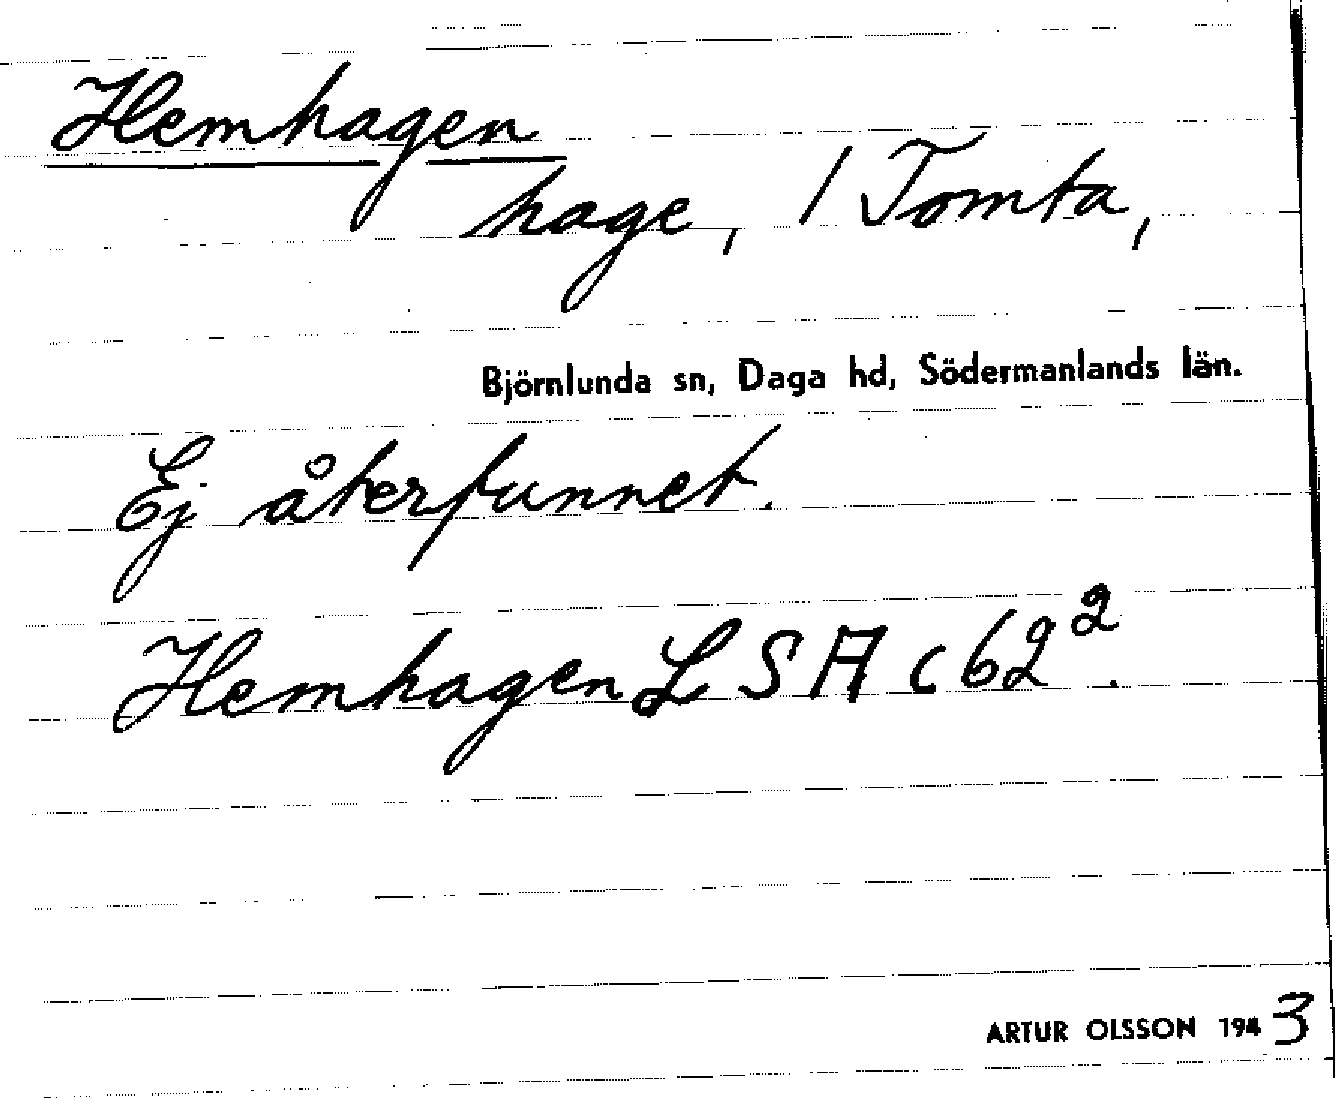 Hemhagen
hage, / Tomta,
Björnlunda sn, Daga hd, Södermanlands län.
Ej återfunnet.
Hemhagen LSA c 62².
ARTUR OLSSON 1943